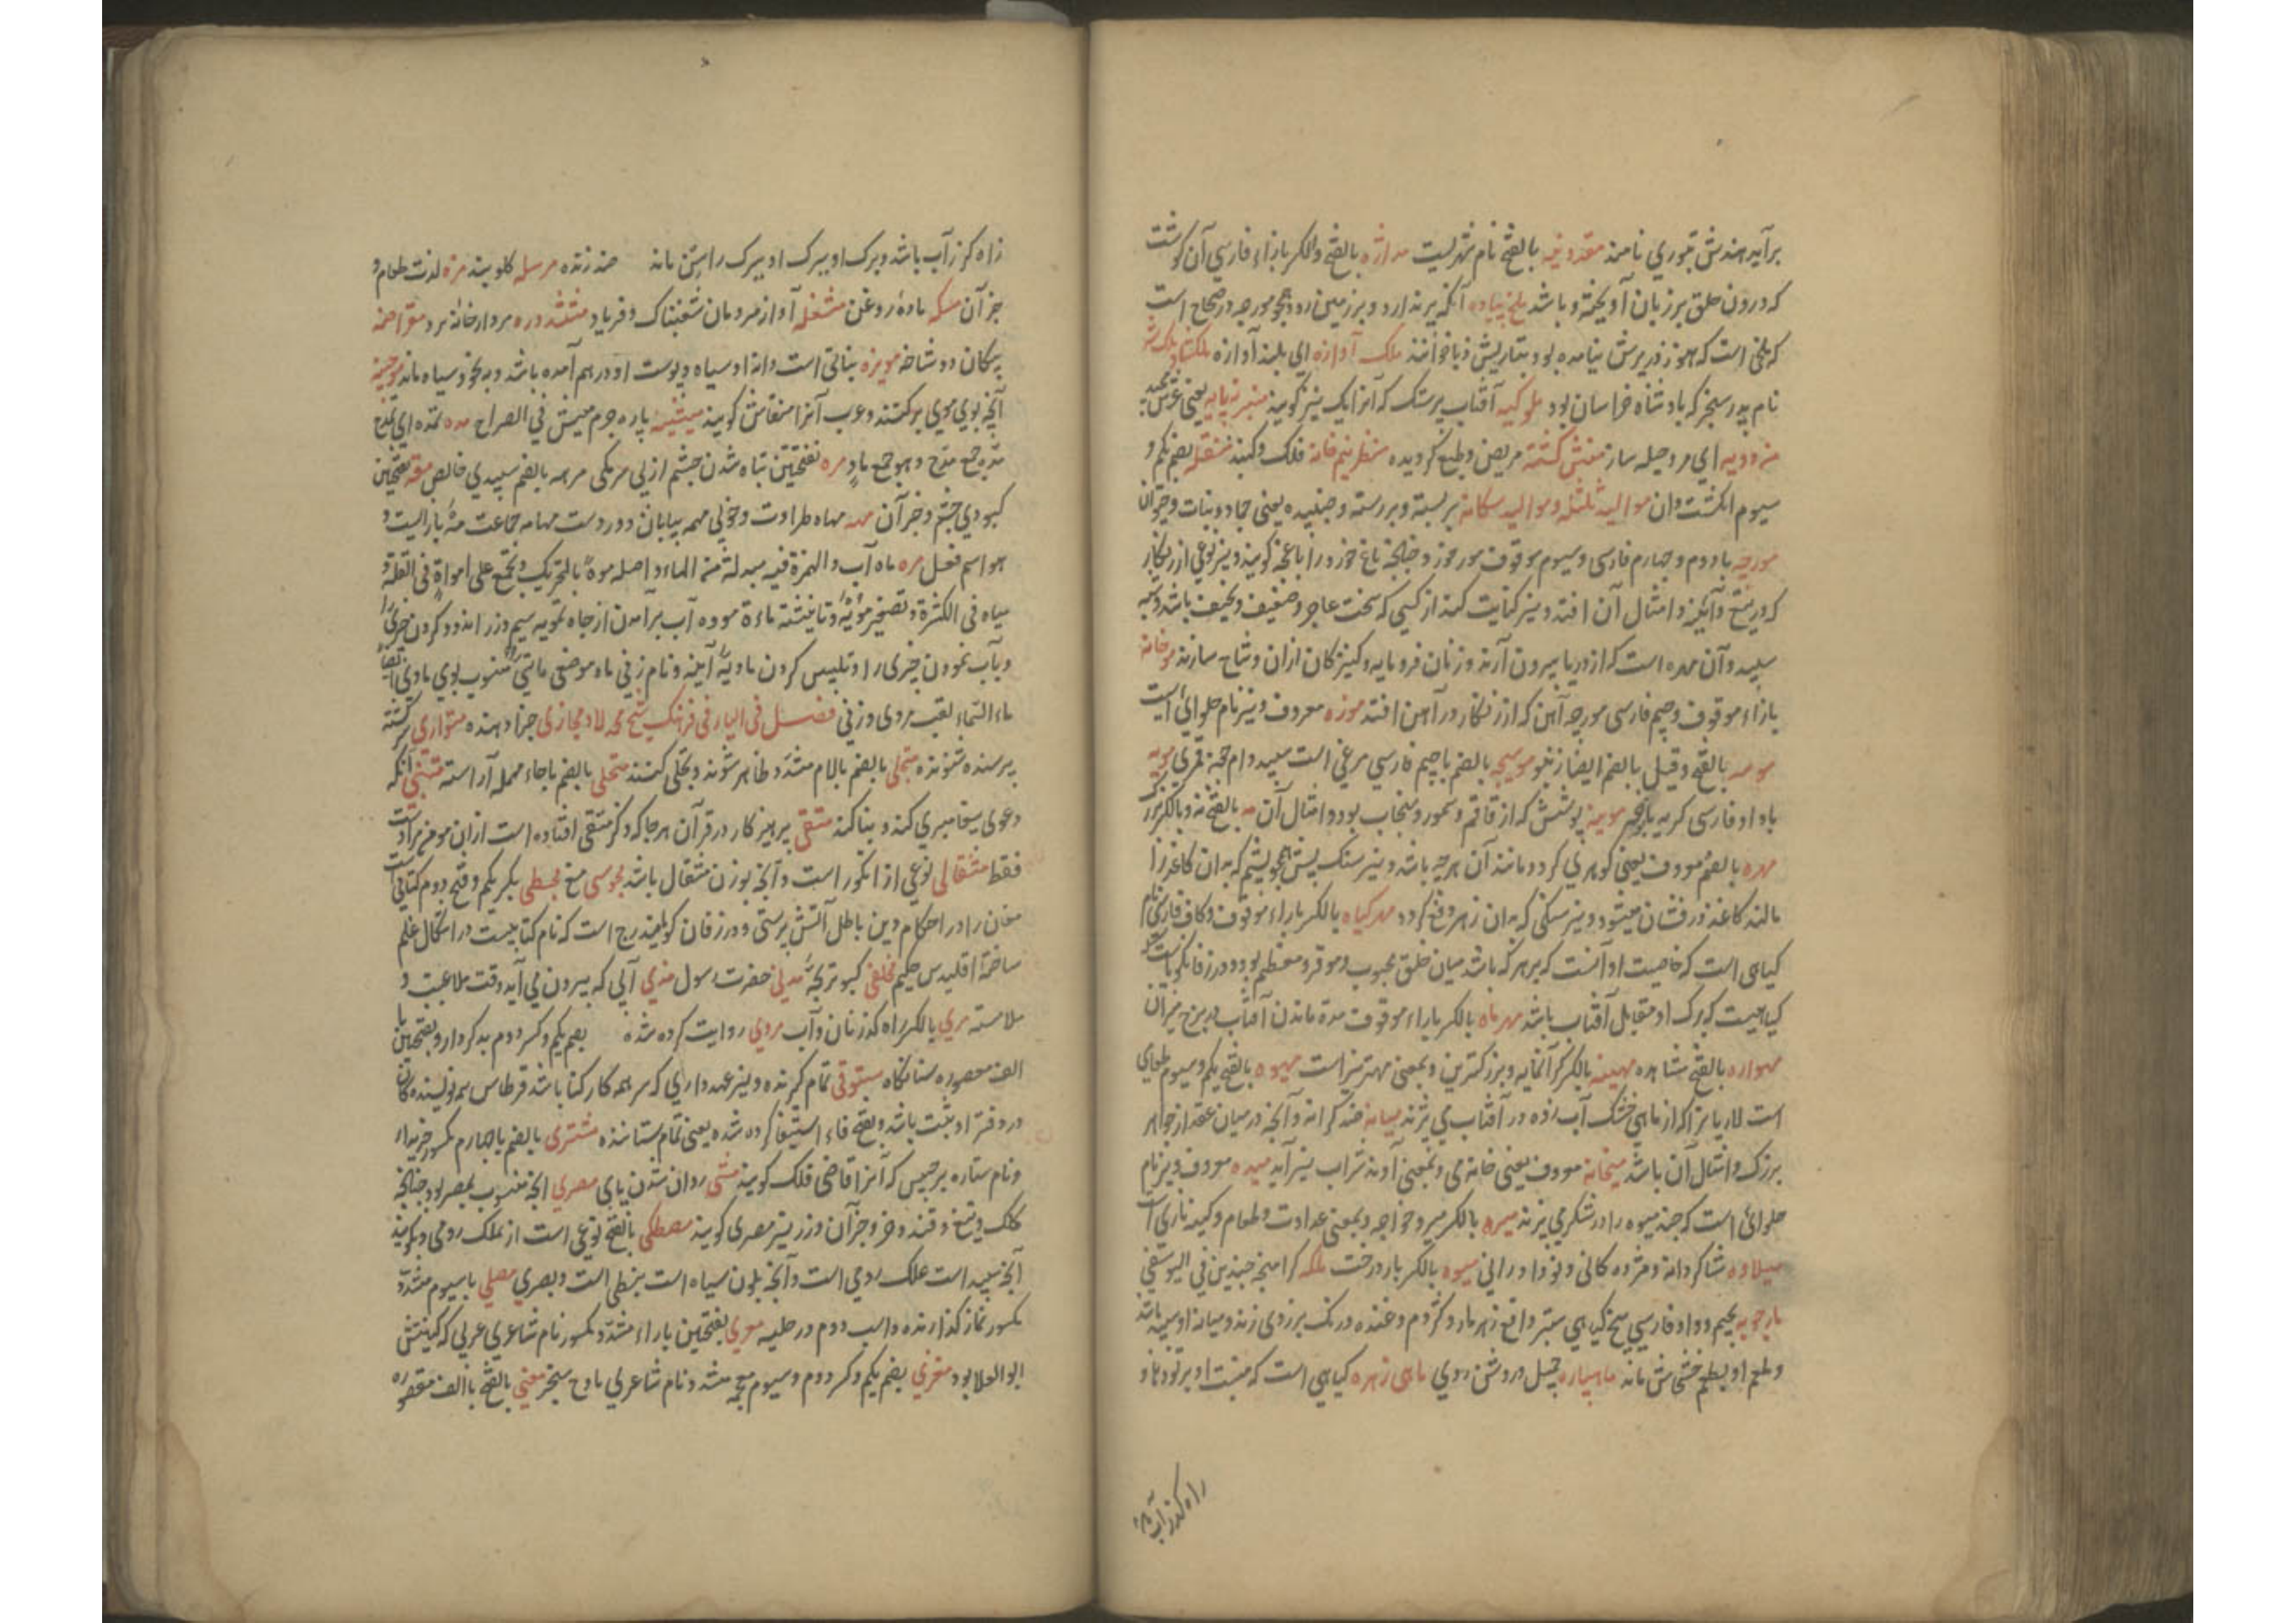 برآید هندش تبوری نامند مقدونیه بالفتح نام شهریست ملازه بالفتح والکر بازاء فارسی آن گوشت
که درون حلق بر زبان آویخته باشد ملخ پیاده آنکه پر ندارد و بر زمین رود همچو مورچه در صحاح است
که ملخی است که هنوز پرش نیامده بود بتازیش دبا خوانند ملک آوازه ای بلند آوازه ملکشاه
نام پدر سنجر که بادشاه خراسان بود ملوکیه آفتاب پرستک که آنرا یک نیز گویند منبر نه پایه یعنی عرش مجید
ای مرد حیله ساز منش گشته مریض و طبع گردیده منظر نیم خانه فلک و گنبد منقله بضم یکم و
سیوم انگشت دان موالید ثلثه و موالید سه گانه بر بسته و بر رسته و جنبیده یعنی جماد و نبات و حیوان
مورچه با دوم و چهارم فارسی و سیوم موقوف مور خرد چنانچه باغ خرد را باغچه گویند و نیز نوعی از زنگار
که در تیغ و آئینه و امثال آن افتد و نیز کنایت کنند از کسی که سخت عاجز و ضعیف و نحیف باشد و
سپید و آن مهره است که از دریا بیرون آرند و زنان فرومایه و کنیزکان ازان و شاح سازند مورخانه
بازاء موقوف و جیم فارسی مورچه آهن که از زنگار در آهن افتد موزه معروف و نیز نام حلوائی است
بالفتح و قیل بالضم ایضا زنغو موسیچه بالضم با جیم فارسی مرغی است سپید دام جفه قمری مویه
با واو فارسی گریه با نوحه موینه پوشش که از قاقم و سمور و سنجاب بود و امثال آن مه بالفتح نه و بالکر بزرگ
مهره بالضم معروف یعنی گوهری گرد و مانند آن هر چه باشد و نیز سنگ بیش همچو یشم که بدان کاغذ را
مالند کاغذ درفشان میشود و نیز سنگی که بدان زهر دفع گردد مهر گیاه بالکر باراء موقوف و کاف فارسی نام
گیاهی است که خاصیت او آنست که بر هر که باشد میان خلق محبوب و موقر و معظم بود و در زفان گویاست
گیاهیست که برگ او مقابل آفتاب باشد مهر ماه بالکر باراء موقوف مدة ماندن آفتاب در برج میزان
مهواره بالفتح مشاهره مهینه بالکر گرانمایه و بزرگترین و بمعنی مهتر نیز است مهیوه بالفتح یکم و سیوم طعامی
است لاریانرا که از ماهی خشک آب زده در آفتاب می پزند میانه ضد کرانه و آنچه در میان عقد از جواهر
بزرگ و امثال آن باشد میخانه معروف یعنی خانه می و بمعنی آوند شراب نیز آید میده معروف و نیز نام
حلوائی است که چند میوه را در شکر می پزند میره بالکر میر و خواجه و بمعنی عداوت و طعام و کینه تازی است
میلاوه شاگردانه و مژده کانی و نو دارانی میوه بالکر بار درخت ملکه کرا میخه جنیدن فی الیوسفی
مارچوبه بجیم و واو فارسی بیخ گیاهی ستبر دافع زهر مار و کژدم و عنده در رنگ بزردی زند و میانه او سپید باشد
و طعم او بطعم خشخاش ماند ماه پیاره جمیل و روشن روی ماهی زهره گیاهی است که منبت او بر تودها و
راه گذر آب باشد
راه گذر آب باشد و برگ او ببرگ او ببرگ راستن ماند ضد زنده مرسله گلوبند مزه لذت طعام و
جز آن مسکه ماده روغن مشغله آواز مردمان شغبناک و فریاد مششدره مردار خانه نرد مقراضه
پیکان دو شاخه مویزه نباتی است دانه او سیاه و پوست او در هم آمده باشد و به نخود سیاه ماند موچینه
آنچه بوی موی برکنند و عرب آنرا منقاش گویند میشینه پاره چرم میش فی الصراح مده
مده جمع مدح و هو جمع ماده مره بفتحتین تباه شدن چشم از بی سرمکی مرهه بالضم سپیدی خالص مقه بفتحتین
کبودی چشم و جز آن مهه مهاه طراوت و خوبی مهمه بیابان دوردست مهامه جماعت مه باز ایست و
هو اسم فعل مره ماه آب و الهمزة فیه مبدلة من الهاء و اصله موه بالتحریک و تجمع علی امواه فی القلة و
میاه فی الکثرة و تصغیر مویه و تانیثه ماءة موه آب برآمدن از چاه تمویه سیم و زر اندود کردن چیزی را
و بآب نمودن چیزی را و تلبیس کردن ماویه آئینه و نام زنی ماه موضعی مایی منسوب بوی ماوی ایضا
ماء السماء لقب مردی و زنی فصل فی الیاء فی فرهنگ شیخ محمد لاد مجازی جزا دهنده متواری سرگشته
پرسنده شنونده متجلی بالضم بالام مشدد ظاهر شونده و تجلی کننده متحلی بالضم باحاء مهمله آراسته متنبی آنکه
دعوی پیغامبری کند و بنا کند متقی پرهیزگار در قرآن هر جا که ذکر متقی افتاده است ازان مومن مراد است
فقط مثقالی نوعی از انگور است و آنچه بوزن مثقال باشد مجوسی مغ مجسطی بکسر یکم و فتح دوم کتابی است
مغان را در احکام دین باطل آتش پرستی و در زفان گویا مندرج است که نام کتابیست در اشکال علم
ساخته اقلیدس حکیم مخلفی کبوتر بچه مدنی حضرت رسول مذی آبی که بیرون می آید وقت ملاعبت و
ملامسه مری بالکسر راه گذر نان و آب مروی روایت کرده شده بضم یکم و کسر دوم بدکردار و بفتحین با
الف مقصوره ستانگاه مستوفی تمام گیرنده و نیز عهدداری که سر همه کارکنا باشد قرطاس بر نویسنده کان
در دفتر او ثبت باشد و بفتح فاء استیفا کرده شده یعنی تمام بستانده مشتری بالضم با چهارم مکسور خریدار
و نام ستاره برجیس که آنرا قاضی فلک گویند مشی روان شدن پای مصری آنچه منسوب بمصر بود چنانچه
کلک و تیغ و قند و خر و جز آن و زر نیز مصری گویند مصطکی بالفتح نوعی است از علک رومی و گویند
آنچه سپید است علک رومی است و آنچه بلون سیاه است نبطی است و بصری مصلی با سیوم مشدد
مکسور نماز گذارنده و اسب دوم در حلبه معری بفتحتین باراء مشدد مکسور نام شاعری عربی که کنیتش
ابو العلا بود معزی بضم یکم و کسر دوم و سیوم معجمه مشدد نام شاعری مادح سنجر مغنی بالفتح با الف مقصوره